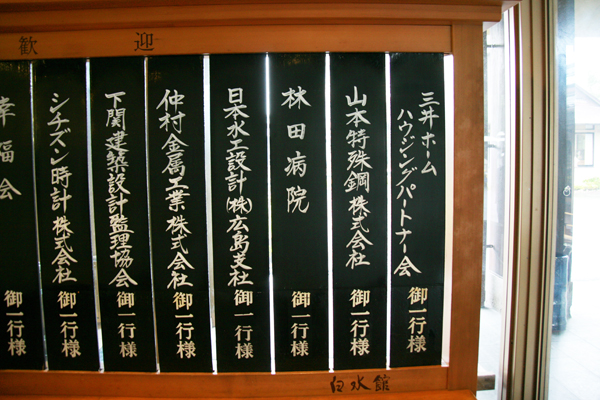 歓 迎
三井ホーム
ハウジングパートナー会
御一行様
山本特殊鋼株式会社
御一行様
林田病院
御一行様
日本水工設計(株)広島支社
御一行様
仲村金属工業株式会社
御一行様
下関建築設計監理協会
御一行様
シチズン時計株式会社
御一行様
幸福会
御一行様
白水館